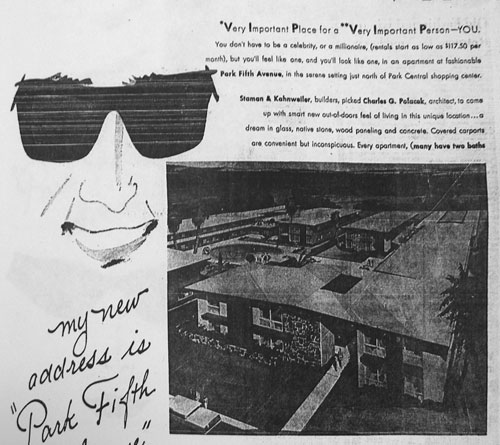 *Very Important Place for a **Very Important Person—YOU.
You don't have to be a celebrity, or a millionaire, (rentals start as low as $117.50 per
month), but you'll feel like one, and you'll look like one, in an apartment at fashionable
Park Fifth Avenue, in the serene setting just north of Park Central shopping center.
Staman & Kahnweiler, builders, picked Charles G. Polacek, architect, to come
up with smart new out-of-doors feel of living in this unique location...a
dream in glass, native stone, wood paneling and concrete. Covered carports
are convenient but inconspicuous. Every apartment, (many have two baths
my new
address is
"Park Fifth